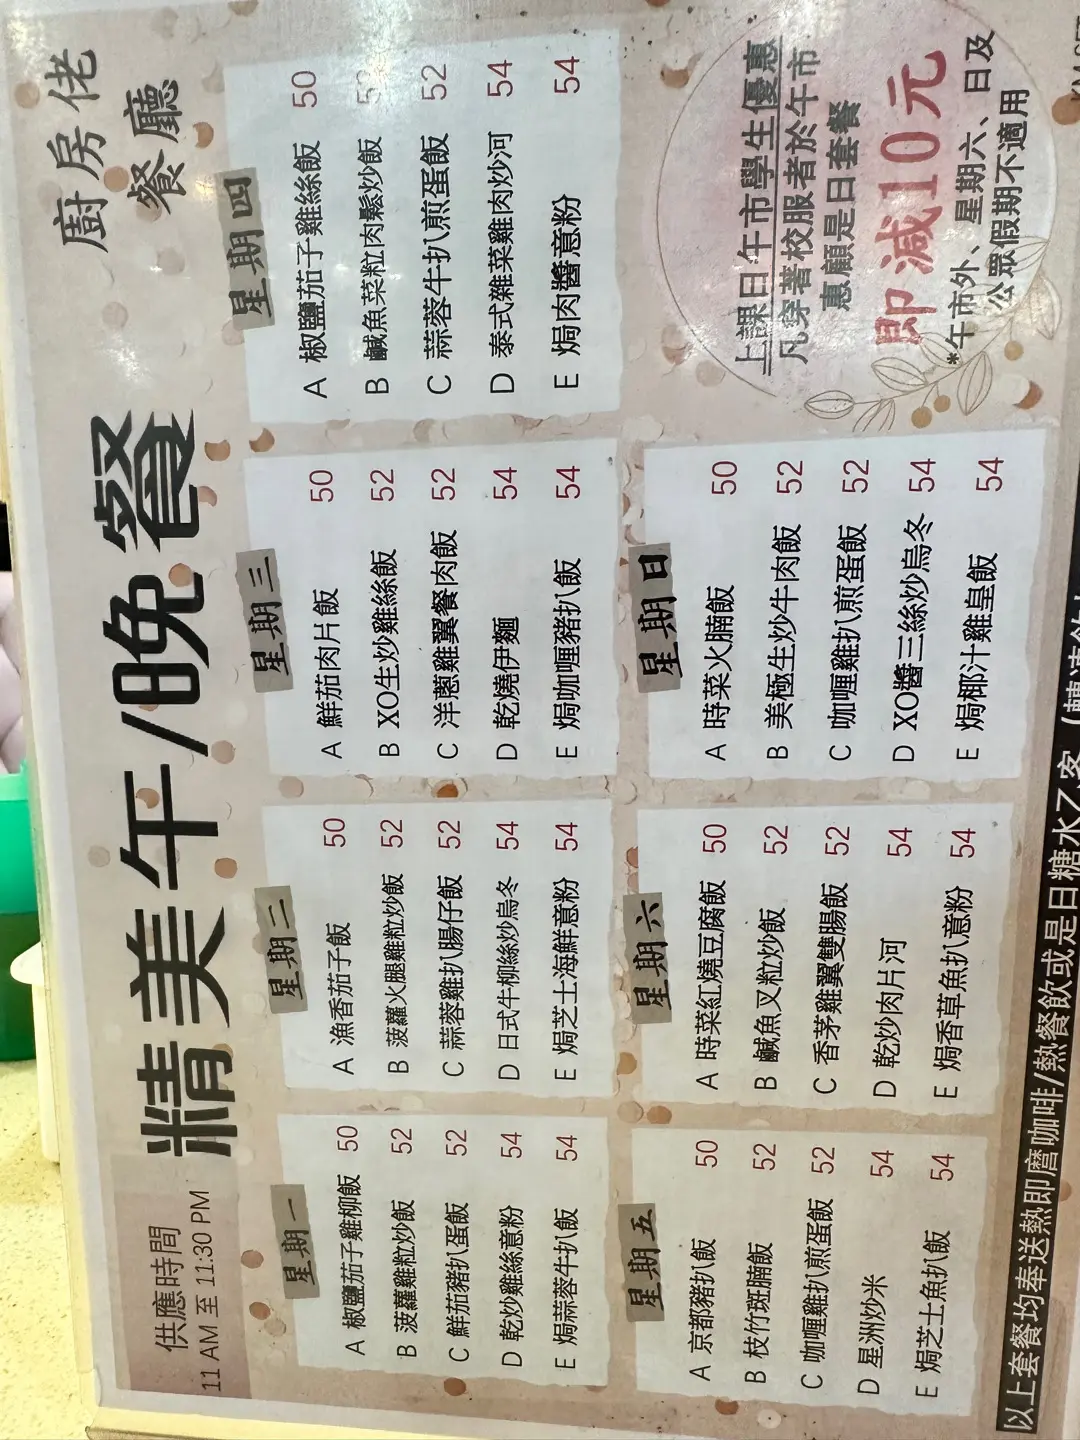 廚房佬
餐廳
精美午/晚餐
供應時間
11 AM 至 11:30 PM
星期一
A 椒鹽茄子雞柳飯 50
B 菠蘿雞粒炒飯 52
C 鮮茄豬扒蛋飯 52
D 乾炒雞絲意粉 54
E 焗蒜蓉牛扒飯 54
星期二
A 漁香茄子飯 50
B 菠蘿火腿雞粒炒飯 52
C 蒜蓉雞扒腸仔飯 52
D 日式牛柳絲炒烏冬 54
E 焗芝士海鮮意粉 54
星期三
A 鮮茄肉片飯 50
B XO生炒雞絲飯 52
C 洋蔥雞翼餐肉飯 52
D 乾燒伊麵 54
E 焗咖喱豬扒飯 54
星期四
A 椒鹽茄子雞絲飯 50
B 鹹魚菜粒肉鬆炒飯 52
C 蒜蓉牛扒煎蛋飯 52
D 泰式雜菜雞肉炒河 54
E 焗肉醬意粉 54
星期五
A 京都豬扒飯 50
B 枝竹斑腩飯 52
C 咖喱雞扒煎蛋飯 52
D 星洲炒米 54
E 焗芝士魚扒飯 54
星期六
A 時菜紅燒豆腐飯 50
B 鹹魚叉粒炒飯 52
C 香茅雞翼雙腸飯 52
D 乾炒肉片河 54
E 焗香草魚扒意粉 54
星期日
A 時菜火腩飯 50
B 美極生炒牛肉飯 52
C 咖喱雞扒煎蛋飯 52
D XO醬三絲炒烏冬 54
E 焗椰汁雞皇飯 54
上課日午市學生優惠
凡穿著校服者於午市
惠顧是日套餐
即減10元
*午市外、星期六、日及
公眾假期不適用
以上套餐均奉送熱即磨咖啡/熱餐飲或是日糖水乙客